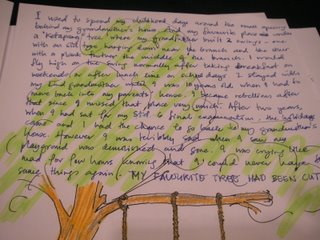 I used to spend my childhood days around the most spacey
behind my grandmother's house. And my favourite place was under
a "Ketapang" tree where my grandfather built a swing
with an old tyre hanging down near the branch and the other
with a plank near the middle of the branch. I would
fly high on the swing usually after taking breakfast on
weekends or after lunch time on school days. I stayed with
my late grandmother until I was 10 years old when I had to
move back into my parents' house. I became rebellious after
that since I missed that place very much. After two years,
when I had sat for my Std 6 final examination, the holidays
came and I had the chance to go back to my grandmother's
house. However I was terribly sad when I saw my
playground was demolished and gone. I was crying like
mad for few hours knowing that I could never have the
same things again. MY FAVOURITE TREES HAD BEEN CUT